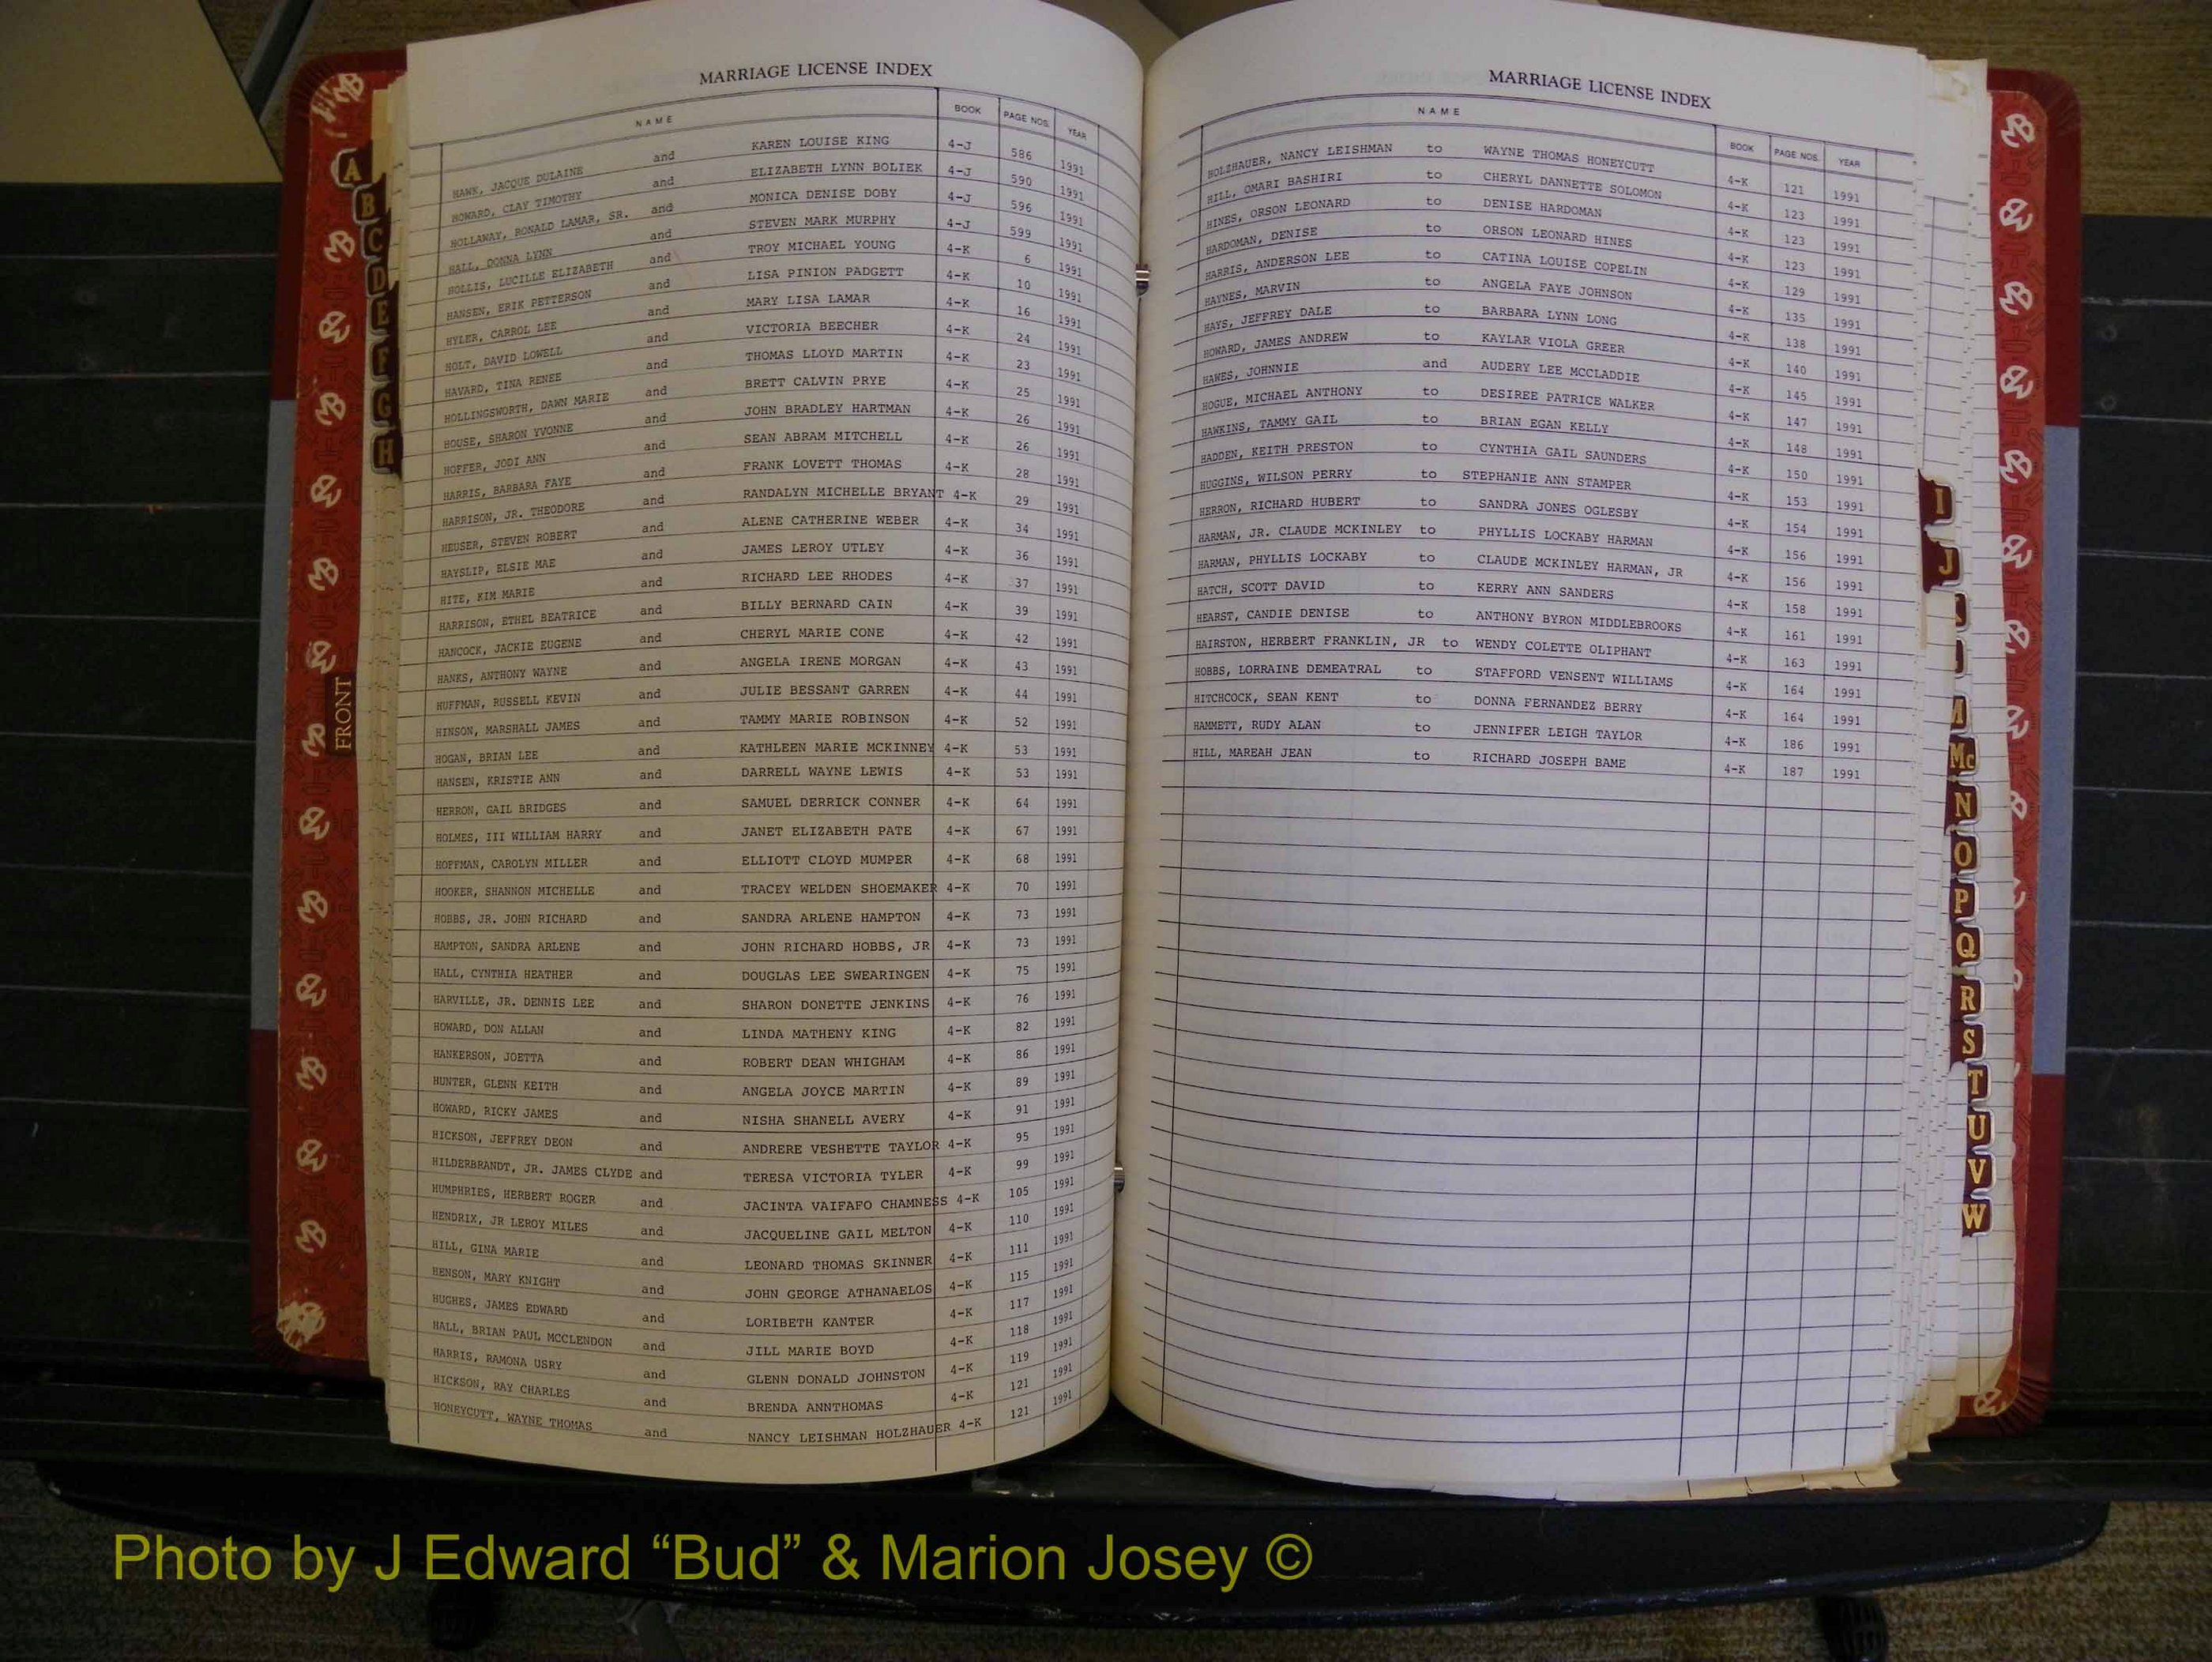 MARRIAGE LICENSE INDEX
NAME BOOK PAGE NOS. YEAR
HAWK, JACQUE DULAINE and KAREN LOUISE KING 4-J 586 1991
HOWARD, CLAY TIMOTHY and ELIZABETH LYNN BOLIEK 4-J 590 1991
HOLLAWAY, RONALD LAMAR, SR. and MONICA DENISE DOBY 4-J 596 1991
HALL, DONNA LYNN and STEVEN MARK MURPHY 4-J 599 1991
HOLLIS, LUCILLE ELIZABETH and TROY MICHAEL YOUNG 4-K 6 1991
HANSEN, ERIK PETTERSON and LISA PINION PADGETT 4-K 10 1991
HYLER, CARROL LEE and MARY LISA LAMAR 4-K 16 1991
HOLT, DAVID LOWELL and VICTORIA BEECHER 4-K 24 1991
HAVARD, TINA RENEE and THOMAS LLOYD MARTIN 4-K 23 1991
HOLLINGSWORTH, DAWN MARIE and BRETT CALVIN PRYE 4-K 25 1991
HOUSE, SHARON YVONNE and JOHN BRADLEY HARTMAN 4-K 26 1991
HOFFER, JODI ANN and SEAN ABRAM MITCHELL 4-K 26 1991
HARRIS, BARBARA FAYE and FRANK LOVETT THOMAS 4-K 28 1991
HARRISON, JR. THEODORE and RANDALYN MICHELLE BRYANT 4-K 29 1991
HEUSER, STEVEN ROBERT and ALENE CATHERINE WEBER 4-K 34 1991
HAYSLIP, ELSIE MAE and JAMES LEROY UTLEY 4-K 36 1991
HITE, KIM MARIE and RICHARD LEE RHODES 4-K 37 1991
HARRISON, ETHEL BEATRICE and BILLY BERNARD CAIN 4-K 39 1991
HANCOCK, JACKIE EUGENE and CHERYL MARIE CONE 4-K 42 1991
HANKS, ANTHONY WAYNE and ANGELA IRENE MORGAN 4-K 43 1991
HUFFMAN, RUSSELL KEVIN and JULIE BESSANT GARREN 4-K 44 1991
HINSON, MARSHALL JAMES and TAMMY MARIE ROBINSON 4-K 52 1991
HOGAN, BRIAN LEE and KATHLEEN MARIE MCKINNEY 4-K 53 1991
HANSEN, KRISTIE ANN and DARRELL WAYNE LEWIS 4-K 53 1991
HERRON, GAIL BRIDGES and SAMUEL DERRICK CONNER 4-K 64 1991
HOLMES, III WILLIAM HARRY and JANET ELIZABETH PATE 4-K 67 1991
HOFFMAN, CAROLYN MILLER and ELLIOTT CLOYD MUMPER 4-K 68 1991
HOOKER, SHANNON MICHELLE and TRACEY WELDEN SHOEMAKER 4-K 70 1991
HOBBS, JR. JOHN RICHARD and SANDRA ARLENE HAMPTON 4-K 73 1991
HAMPTON, SANDRA ARLENE and JOHN RICHARD HOBBS, JR 4-K 73 1991
HALL, CYNTHIA HEATHER and DOUGLAS LEE SWEARINGEN 4-K 75 1991
HARVILLE, JR. DENNIS LEE and SHARON DONETTE JENKINS 4-K 76 1991
HOWARD, DON ALLAN and LINDA MATHENY KING 4-K 82 1991
HANKERSON, JOETTA and ROBERT DEAN WHIGHAM 4-K 86 1991
HUNTER, GLENN KEITH and ANGELA JOYCE MARTIN 4-K 89 1991
HOWARD, RICKY JAMES and NISHA SHANELL AVERY 4-K 91 1991
HICKSON, JEFFREY DEON and ANDRERE VESHETTE TAYLOR 4-K 95 1991
HILDERBRANDT, JR. JAMES CLYDE and TERESA VICTORIA TYLER 4-K 99 1991
HUMPHRIES, HERBERT ROGER and JACINTA VAIFAFO CHAMNESS 4-K 105 1991
HENDRIX, JR LEROY MILES and JACQUELINE GAIL MELTON 4-K 110 1991
HILL, GINA MARIE and LEONARD THOMAS SKINNER 4-K 111 1991
HENSON, MARY KNIGHT and JOHN GEORGE ATHANAELOS 4-K 115 1991
HUGHES, JAMES EDWARD and LORIBETH KANTER 4-K 117 1991
HALL, BRIAN PAUL MCCLENDON and JILL MARIE BOYD 4-K 118 1991
HARRIS, RAMONA USRY and GLENN DONALD JOHNSTON 4-K 119 1991
HICKSON, RAY CHARLES and BRENDA ANNTHOMAS 4-K 121 1991
HONEYCUTT, WAYNE THOMAS and NANCY LEISHMAN HOLZHAUER 4-K 121 1991
MARRIAGE LICENSE INDEX
NAME BOOK PAGE NOS. YEAR
HOLZHAUER, NANCY LEISHMAN to WAYNE THOMAS HONEYCUTT 4-K 121 1991
HILL, OMARI BASHIRI to CHERYL DANNETTE SOLOMON 4-K 123 1991
HINES, ORSON LEONARD to DENISE HARDOMAN 4-K 123 1991
HARDOMAN, DENISE to ORSON LEONARD HINES 4-K 123 1991
HARRIS, ANDERSON LEE to CATINA LOUISE COPELIN 4-K 129 1991
HAYNES, MARVIN to ANGELA FAYE JOHNSON 4-K 135 1991
HAYS, JEFFREY DALE to BARBARA LYNN LONG 4-K 138 1991
HOWARD, JAMES ANDREW to KAYLAR VIOLA GREER 4-K 140 1991
HAWES, JOHNNIE and AUDERY LEE MCCLADDIE 4-K 145 1991
HOGUE, MICHAEL ANTHONY to DESIREE PATRICE WALKER 4-K 147 1991
HAWKINS, TAMMY GAIL to BRIAN EGAN KELLY 4-K 148 1991
HADDEN, KEITH PRESTON to CYNTHIA GAIL SAUNDERS 4-K 150 1991
HUGGINS, WILSON PERRY to STEPHANIE ANN STAMPER 4-K 153 1991
HERRON, RICHARD HUBERT to SANDRA JONES OGLESBY 4-K 154 1991
HARMAN, JR. CLAUDE MCKINLEY to PHYLLIS LOCKABY HARMAN 4-K 156 1991
HARMAN, PHYLLIS LOCKABY to CLAUDE MCKINLEY HARMAN, JR 4-K 156 1991
HATCH, SCOTT DAVID to KERRY ANN SANDERS 4-K 158 1991
HEARST, CANDIE DENISE to ANTHONY BYRON MIDDLEBROOKS 4-K 161 1991
HAIRSTON, HERBERT FRANKLIN, JR to WENDY COLETTE OLIPHANT 4-K 163 1991
HOBBS, LORRAINE DEMEATRAL to STAFFORD VENSENT WILLIAMS 4-K 164 1991
HITCHCOCK, SEAN KENT to DONNA FERNANDEZ BERRY 4-K 164 1991
HAMMETT, RUDY ALAN to JENNIFER LEIGH TAYLOR 4-K 186 1991
HILL, MAREAH JEAN to RICHARD JOSEPH BAME 4-K 187 1991
A
B
C
D
E
F
G
H
FRONT
I
J
M
Mc
N
O
P
Q
R
S
T
U
V
W
Photo by J Edward “Bud” & Marion Josey ©